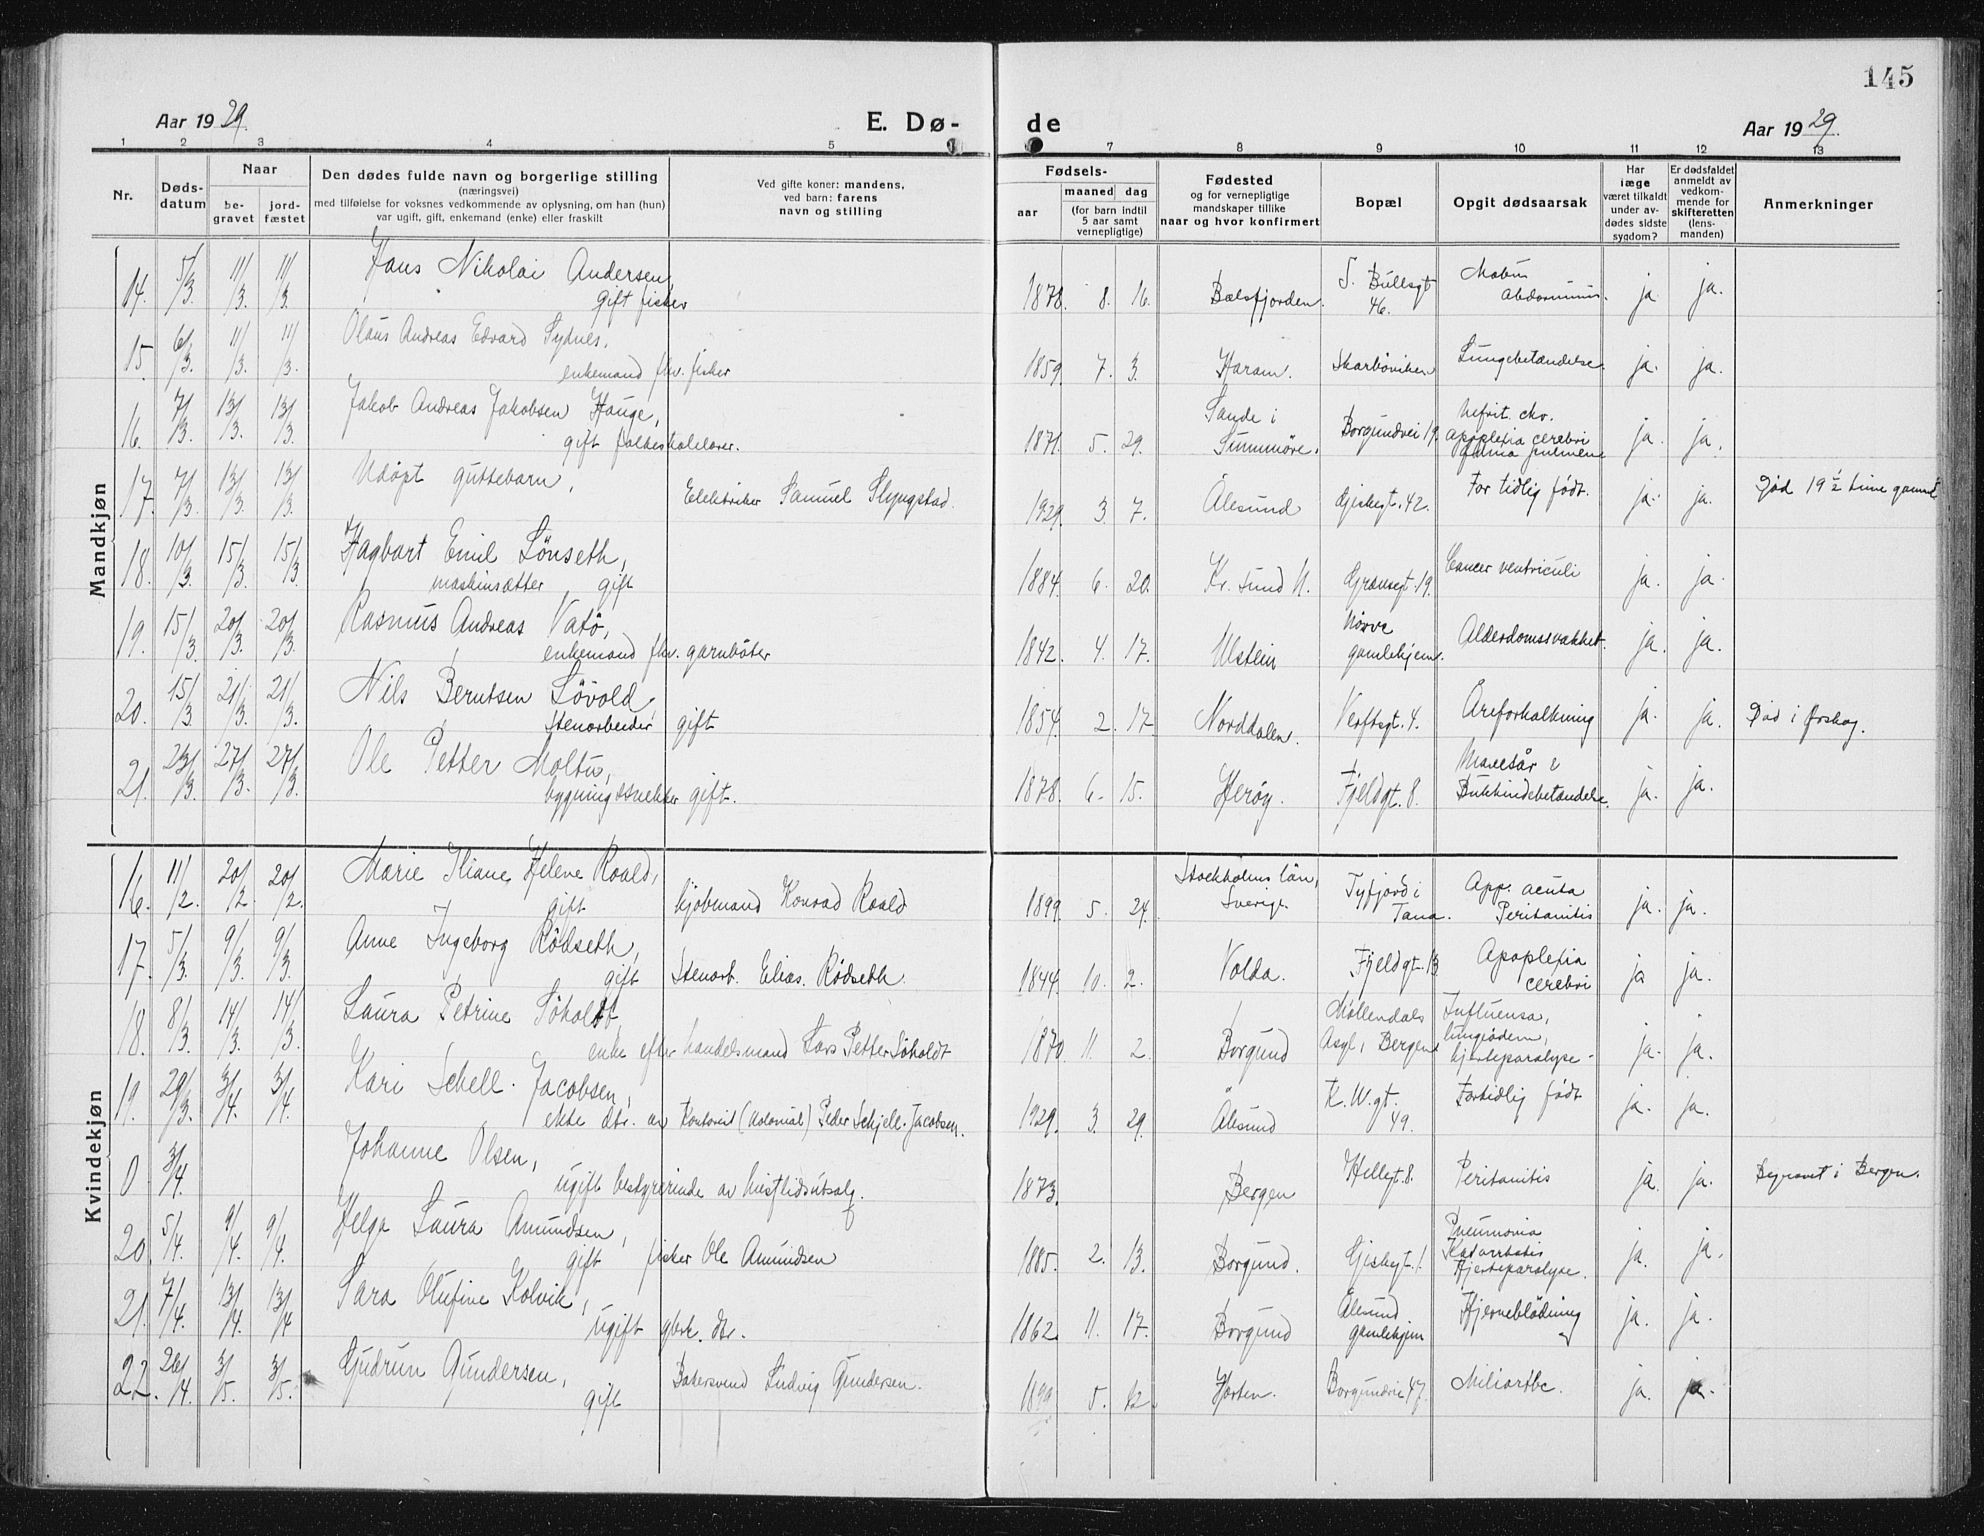 145
Aar 1929.
E. Dø-
de
Aar 1929.
1 2 3 4 5 7 8 9 10 11 12 13
Nr.
Døds-
datum
Naar
be-
gravet
jord-
fæstet
Den dødes fulde navn og borgerlige stilling
(næringsvei)
med tilføielse for voksnes vedkommende av oplysning, om han (hun)
var ugift, gift, enkemand (enke) eller fraskilt
Ved gifte koner: mandens,
ved barn: farens
navn og stilling
Fødsels-
aar
maaned dag
(for barn indtil
5 aar samt
vernepligtige)
Fødested
og for vernepligtige
mandskaper tillike
naar og hvor konfirmert
Bopæl
Opgit dødsaarsak
Har
læge
været tilkaldt
under av-
dødes sidste
sygdom?
Er dødsfaldet
anmeldt av
vedkom-
mende for
skifteretten
(lens-
manden)
Anmerkninger
Mandkjøn
14. 5/3 11/3 11/3 Hans Nikolai Andersen,
gift fisker
1878. 8. 16. Balsfjorden. S. Bullsgt
46. Abdominus. ja. ja.
15. 6/3 11/3 11/3 Olaus Andreas Edvard Sydnes,
enkemand fhv. fisker
1859. 7. 3. Haram. Skarbøviken Lungebetændelse. ja. ja.
16. 7/3 13/3 13/3 Jakob Andreas Jakobsen Hauge,
gift folkeskolelærer.
1871. 5. 29. Sande i
Sunnmöre. Borgundvei 19. Nefrit. chr.
Apoplexia cerebri
ja. ja.
17. 7/3 13/3 13/3 Udöpt guttebarn,
Elektriker Samuel Slyngstad.
1929. 3. 7. Ålesund Gjiskegt. 42. For tidlig født. ja. ja. Död 19 1/2 time gammel
18. 10/3 15/3 15/3 Hagbart Emil Lönseth,
maskinsætter gift
1884. 6. 20. Kr. sund N. Grænsegt. 19. Cancer ventriculi ja. ja.
19. 15/3 20/3 20/3 Rasmus Andreas Vatö,
enkemand fhv. garnbøter
1842. 4. 17. Ulstein Nörve
gamlehjem. Alderdomssvakhet. ja. ja.
20. 15/3 21/3 21/3 Nils Berntsen Lövold
Stenarbeider gift
1854. 2. 17 Norddalen. Verftsgt. 4. Åreforkalkning ja. ja. Død i Ørskog.
21. 23/3 27/3 27/3 Ole Petter Moltu,
bygningssnekker gift.
1878. 6. 15. Herøy. Fjeldgt. 8. Mavesår &
Bukhindebetændelse. ja. ja.
Kvindekjøn
16. 11/2. 20/2. 20/2. Marie Helene Roald,
gift kjøbmand Konrad Roald
1899. 5. 24. Stockholms län,
Sverige. Tyfjord i
Tana. App. acuta
Peritonitis ja. ja.
17. 5/3 9/3 9/3 Anne Ingeborg Rödseth,
gift Stenarb. Elias Rødseth.
1844. 10. 2. Volda. Fjeldgt. 13 Apoplexia
cerebri ja ja.
18. 8/3 14/3 14/3 Laura Petrine Söholdt,
enke efter handelsmand Lars Petter Söholdt
1870. 11. 2. Borgund Møllendals
Asyl, Bergen Influensa,
lungeødem,
hjerteparalyse. ja. ja.
19. 29/3 3/4 3/4 Kari Schell-Jacobsen,
ekte dtr. av Kontorist (Kolonial) Peder Schjell-Jacobsen.
1929. 3. 29. Ålesund K.W.gt.
49. Fortidlig född ja. ja.
0 3/4 Johanne Olsen,
ugift bestyrerinde av husflidsutsalg.
1873. Bergen Hellegt. 8. Peritonitis ja. ja. Begravet i Bergen.
20. 5/4. 9/4. 9/4. Helga Laura Amundsen,
gift fisker Ole Amundsen
1885. 2. 13. Borgund. Gjiskegt. 1. Pneumonia
Hjerteparalyse. ja. ja.
21. 7/4. 13/4. 13/4 Sara Olufine Kolvik,
ugift gbrk. dtr.
1862. 11. 17. Borgund Ålesund
gamlehjem Hjerneblödning ja. ja.
22. 26/4 3/5. 3/5. Gudrun Gundersen,
gift Bakersvend Ludvig Gundersen.
1899. 5. 12. Horten. Borgundvei 47. Miliartbc. ja. ja.